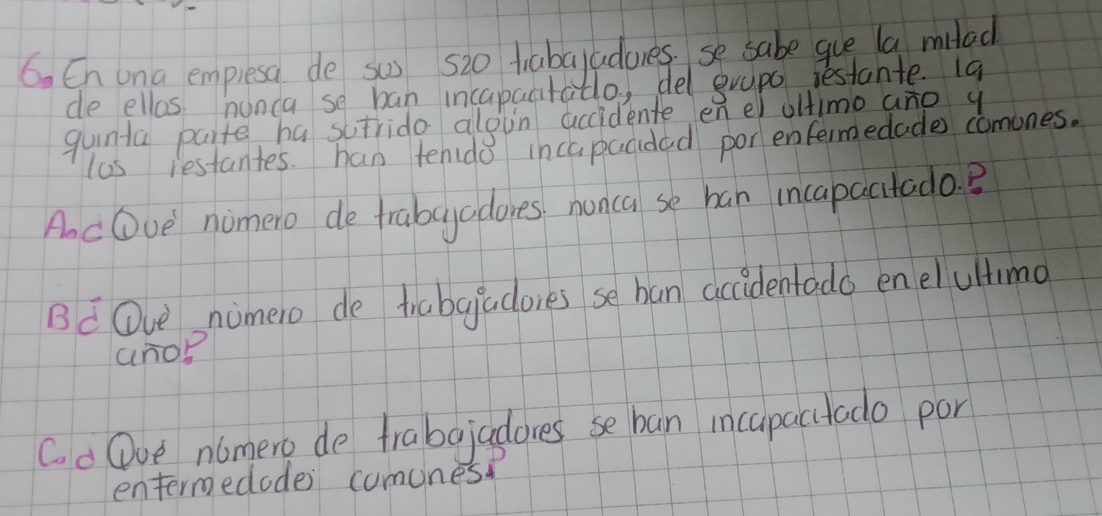 6. En una empresa de sus 520 trabajadores se sabe que la mitad
de ellos nunca se han incapacitado, del grupo restante la
quinta parte ha sufrido algún accidente en el ultimo año y
los restantes han tenido incapacidad por enfermedades comunes.
A. ¿Qué número de trabajadores nunca se han incapacitado?
B ¿Qué número de trabajadores se han accidentado en el ultimo
año?
C. ¿Qué número de trabajadores se han incapacitado por
enfermedades comunes?